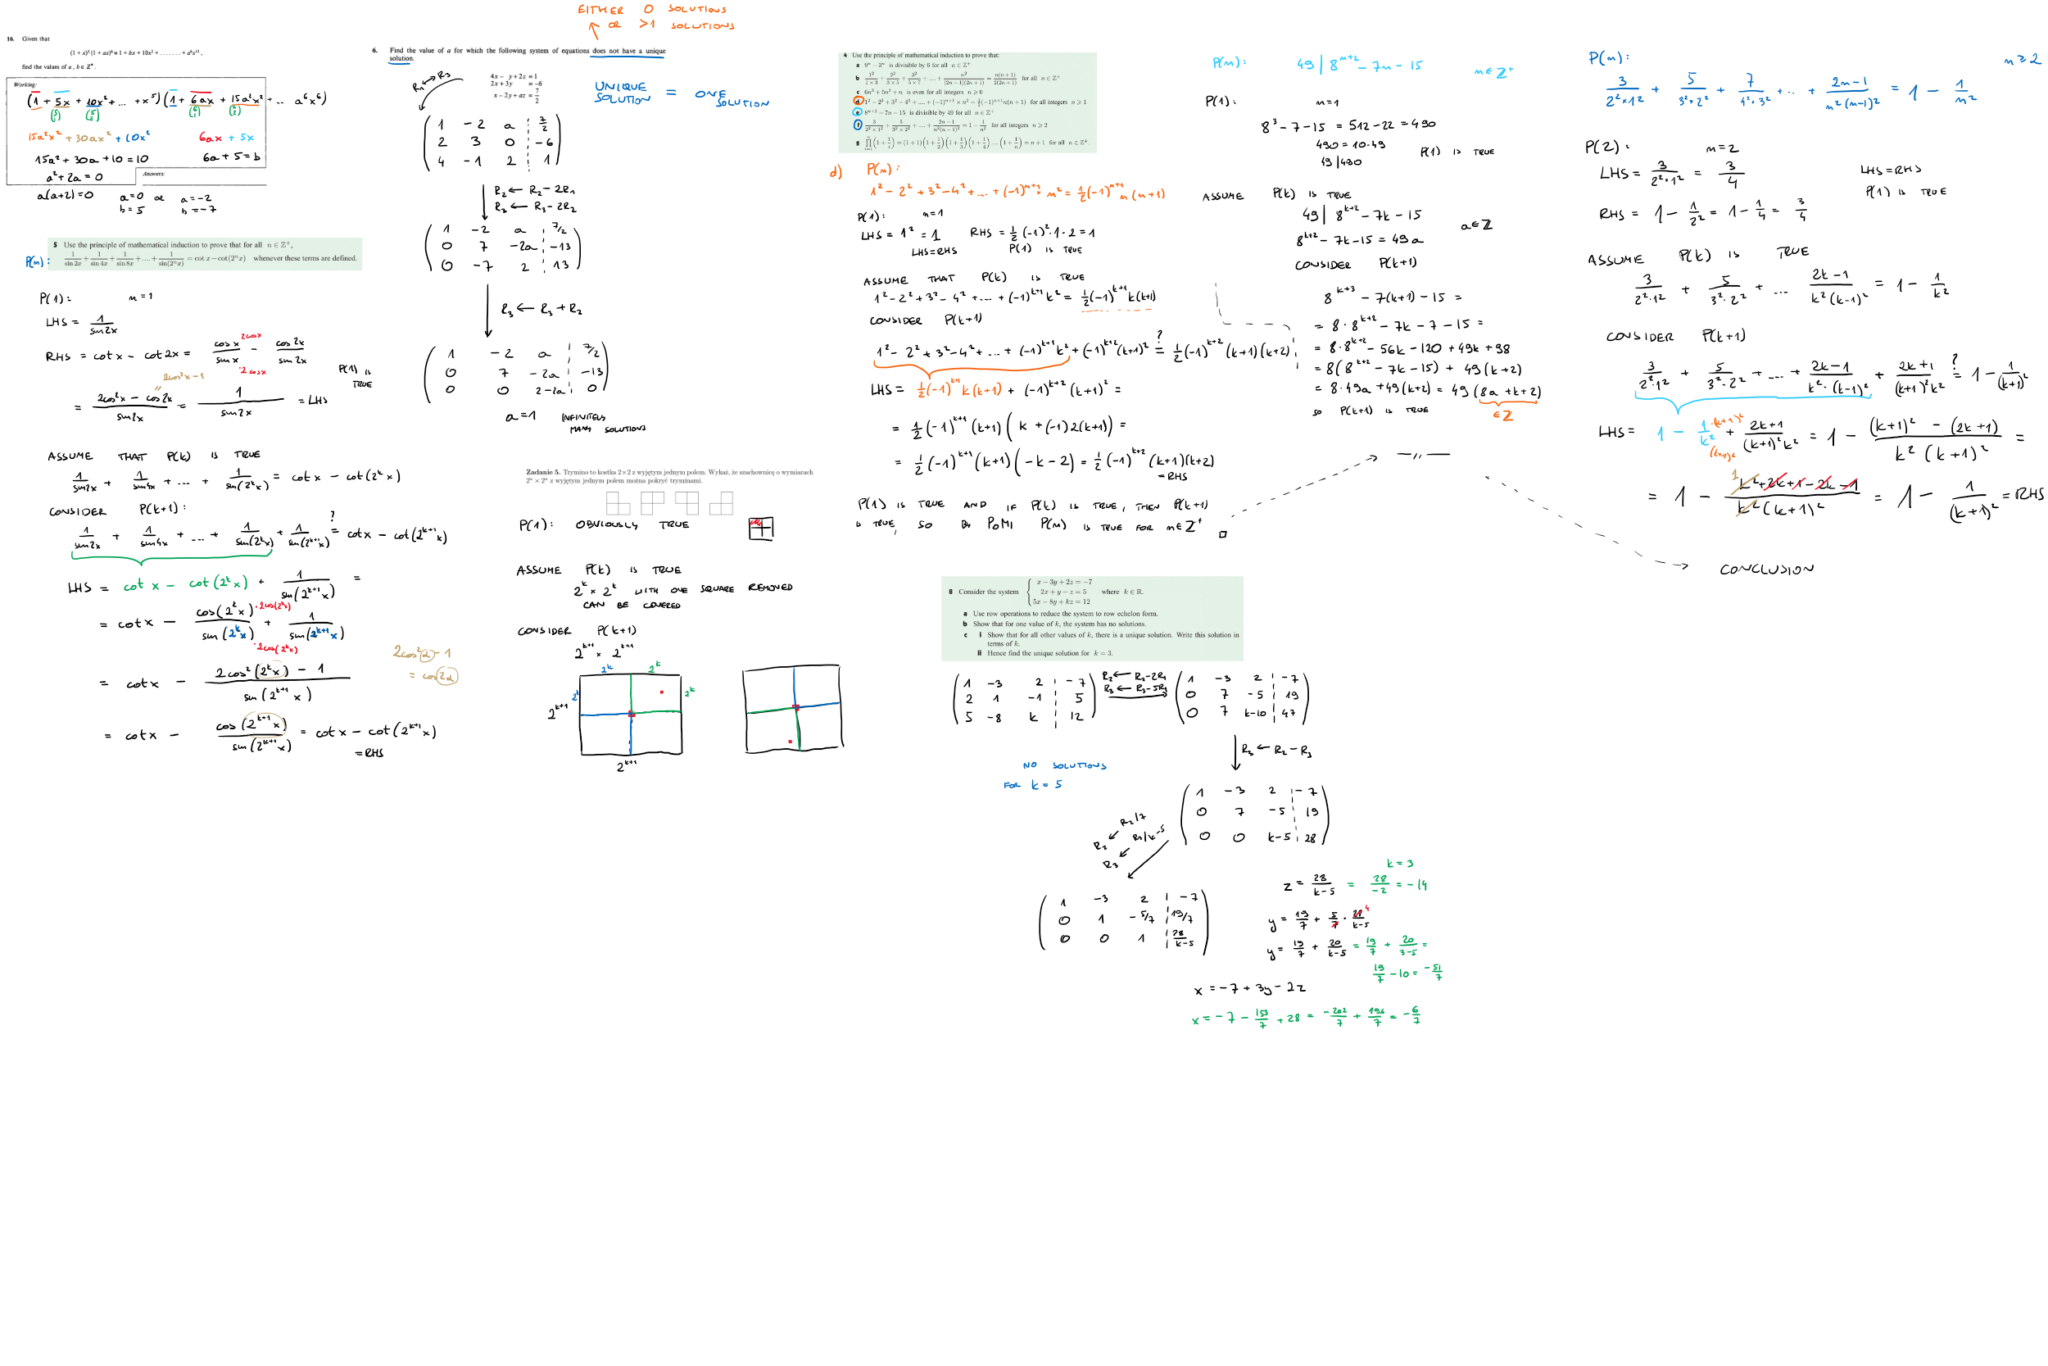 EITHER 0 SOLUTIONS
OR >1 SOLUTIONS
16. Given that
(1 + x)⁵(1 + ax)⁶ ≡ 1 + bx + 10x² + ........ + a⁶x¹¹,
find the values of a, b ∈ ℤ*.
Working:
(1 + 5x + 10x² + ... + x⁵)(1 + 6ax + 15a²x² + ... a⁶x⁶)
15a²x² + 30ax² + 10x²
6ax + 5x
15a² + 30a + 10 = 10
6a + 5 = b
a² + 2a = 0
Answers:
a(a+2) = 0 a=0 or a=-2
b=5 b=-7
5 Use the principle of mathematical induction to prove that for all n ∈ ℤ⁺,
P(n): 1/sin 2x + 1/sin 4x + 1/sin 8x + .... + 1/sin(2ⁿx) = cot x − cot(2ⁿx) whenever these terms are defined.
P(1): n=1
LHS = 1/sin2x
RHS = cotx - cot2x = cosx/sinx - cos2x/sin2x
·2cosx
·2cosx
2cos²x-1
= (2cos²x - cos2x)/sin2x = 1/sin2x = LHS
P(1) IS TRUE
ASSUME THAT P(k) IS TRUE
1/sin2x + 1/sin4x + ... + 1/sin(2ᵏx) = cotx - cot(2ᵏx)
CONSIDER P(k+1):
1/sin2x + 1/sin4x + ... + 1/sin(2ᵏx) + 1/sin(2ᵏ⁺¹x) =? cotx - cot(2ᵏ⁺¹x)
LHS = cot x - cot(2ᵏx) + 1/sin(2ᵏ⁺¹x) =
= cotx - cos(2ᵏx)·2cos(2ᵏx)/sin(2ᵏx)·2cos(2ᵏx) + 1/sin(2ᵏ⁺¹x)
= cotx - (2cos²(2ᵏx) - 1)/sin(2ᵏ⁺¹x)
2cos²(α)-1
= cos(2α)
= cotx - cos(2ᵏ⁺¹x)/sin(2ᵏ⁺¹x) = cotx - cot(2ᵏ⁺¹x)
= RHS
6. Find the value of a for which the following system of equations does not have a unique
solution.
4x − y + 2z = 1
2x + 3y = −6
x − 2y + az = 7/2
R₁ ↔ R₃
UNIQUE SOLUTION = ONE SOLUTION
1 -2 a 7/2
2 3 0 -6
4 -1 2 1
R₂ ← R₂ - 2R₁
R₃ ← R₃ - 2R₂
1 -2 a 7/2
0 7 -2a -13
0 -7 2 13
R₃ ← R₃ + R₂
1 -2 a 7/2
0 7 -2a -13
0 0 2-2a 0
a=1 INFINITELY
MANY SOLUTIONS
Zadanie 5. Trymino to kostka 2 × 2 z wyjętym jednym polem. Wykaż, że szachownicę o wymiarach
2ⁿ × 2ⁿ z wyjętym jednym polem można pokryć tryminami.
P(1): OBVIOUSLY TRUE
ASSUME P(k) IS TRUE
2ᵏ × 2ᵏ WITH ONE SQUARE REMOVED
CAN BE COVERED
CONSIDER P(k+1)
2ᵏ⁺¹ × 2ᵏ⁺¹
2ᵏ 2ᵏ
2ᵏ 2ᵏ
2ᵏ⁺¹
2ᵏ⁺¹
4 Use the principle of mathematical induction to prove that:
a 9ⁿ − 3ⁿ is divisible by 6 for all n ∈ ℤ⁺
b 1²/(1×3) + 2²/(3×5) + 3²/(5×7) + .... + n²/((2n−1)(2n+1)) = n(n+1)/(2(2n+1)) for all n ∈ ℤ⁺
c 6n³ + 5n² + n is even for all integers n ⩾ 0
d 1² − 2² + 3² − 4² + .... + (−1)ⁿ⁺¹ × n² = ½(−1)ⁿ⁺¹n(n+1) for all integers n ⩾ 1
e 8ⁿ⁺² − 7n − 15 is divisible by 49 for all n ∈ ℤ⁺
f 3/(2²×1²) + 5/(3²×2²) + .... + (2n−1)/(n²(n−1)²) = 1 − 1/n² for all integers n ⩾ 2
d) P(n):
1² - 2² + 3² - 4² + ... + (-1)ⁿ⁺¹ · n² = ½(-1)ⁿ⁺¹ n(n+1)
P(1): n=1
LHS = 1² = 1 RHS = ½(-1)²·1·2 = 1
LHS=RHS P(1) IS TRUE
ASSUME THAT P(k) IS TRUE
1² - 2² + 3² - 4² + ... + (-1)ᵏ⁺¹k² = ½(-1)ᵏ⁺¹k(k+1)
CONSIDER P(k+1)
1² - 2² + 3² - 4² + ... + (-1)ᵏ⁺¹k² + (-1)ᵏ⁺²(k+1)² =? ½(-1)ᵏ⁺²(k+1)(k+2)
LHS = ½(-1)ᵏ⁺¹k(k+1) + (-1)ᵏ⁺²(k+1)² =
= ½(-1)ᵏ⁺¹(k+1)(k + (-1)2(k+1)) =
= ½(-1)ᵏ⁺¹(k+1)(-k-2) = ½(-1)ᵏ⁺²(k+1)(k+2)
= RHS
P(1) IS TRUE AND IF P(k) IS TRUE, THEN P(k+1)
IS TRUE, SO BY PoMI P(n) IS TRUE FOR n∈ℤ⁺
P(n): 49 | 8ⁿ⁺² - 7n - 15 n∈ℤ⁺
P(1): n=1
8³ - 7 - 15 = 512 - 22 = 490
490 = 10·49
49|490 P(1) IS TRUE
ASSUME P(k) IS TRUE
49 | 8ᵏ⁺² - 7k - 15
8ᵏ⁺² - 7k - 15 = 49a a∈ℤ
CONSIDER P(k+1)
8ᵏ⁺³ - 7(k+1) - 15 =
= 8·8ᵏ⁺² - 7k - 7 - 15 =
= 8·8ᵏ⁺² - 56k - 120 + 49k + 98
= 8(8ᵏ⁺² - 7k - 15) + 49(k+2)
= 8·49a + 49(k+2) = 49(8a + k + 2)
∈ℤ
SO P(k+1) IS TRUE
—,,—
P(n): n≥2
3/(2²·1²) + 5/(3²·2²) + 7/(4²·3²) + ... + (2n-1)/(n²(n-1)²) = 1 - 1/n²
P(2): n=2
LHS = 3/(2²·1²) = 3/4
LHS=RHS
P(1) IS TRUE
RHS = 1 - 1/2² = 1 - 1/4 = 3/4
ASSUME P(k) IS TRUE
3/(2²·1²) + 5/(3²·2²) + ... (2k-1)/(k²(k-1)²) = 1 - 1/k²
CONSIDER P(k+1)
3/(2²·1²) + 5/(3²·2²) + ... + (2k-1)/(k²·(k-1)²) + (2k+1)/((k+1)²k²) =? 1 - 1/(k+1)²
LHS = 1 - 1·(k+1)²/k²·(k+1)² + (2k+1)/((k+1)²k²) = 1 - ((k+1)² - (2k+1))/(k²(k+1)²) =
= 1 - (k²+2k+1-2k-1)/(k²(k+1)²) = 1 - 1/(k+1)² = RHS
CONCLUSION
8 Consider the system
x − 3y + 2z = −7
2x + y − z = 5 where k ∈ ℝ.
5x − 8y + kz = 12
a Use row operations to reduce the system to row echelon form.
b Show that for one value of k, the system has no solutions.
c i Show that for all other values of k, there is a unique solution. Write this solution in
terms of k.
ii Hence find the unique solution for k = 3.
1 -3 2 -7
2 1 -1 5
5 -8 k 12
R₂ ← R₂-2R₁
R₃ ← R₃-5R₁
1 -3 2 -7
0 7 -5 19
0 7 k-10 47
R₃ ← R₂ - R₃
NO SOLUTIONS
FOR k = 5
1 -3 2 -7
0 7 -5 19
0 0 k-5 28
R₂ ← R₂/7
R₃ ← R₃/k-5
1 -3 2 -7
0 1 -5/7 19/7
0 0 1 28/(k-5)
k=3
z = 28/(k-5) = 28/-2 = -14
y = 19/7 + 5/7 · 28⁴/(k-5)
y = 19/7 + 20/(k-5) = 19/7 + 20/(3-5) =
19/7 - 10 = -51/7
x = -7 + 3y - 2z
x = -7 - 153/7 + 28 = -202/7 + 196/7 = -6/7